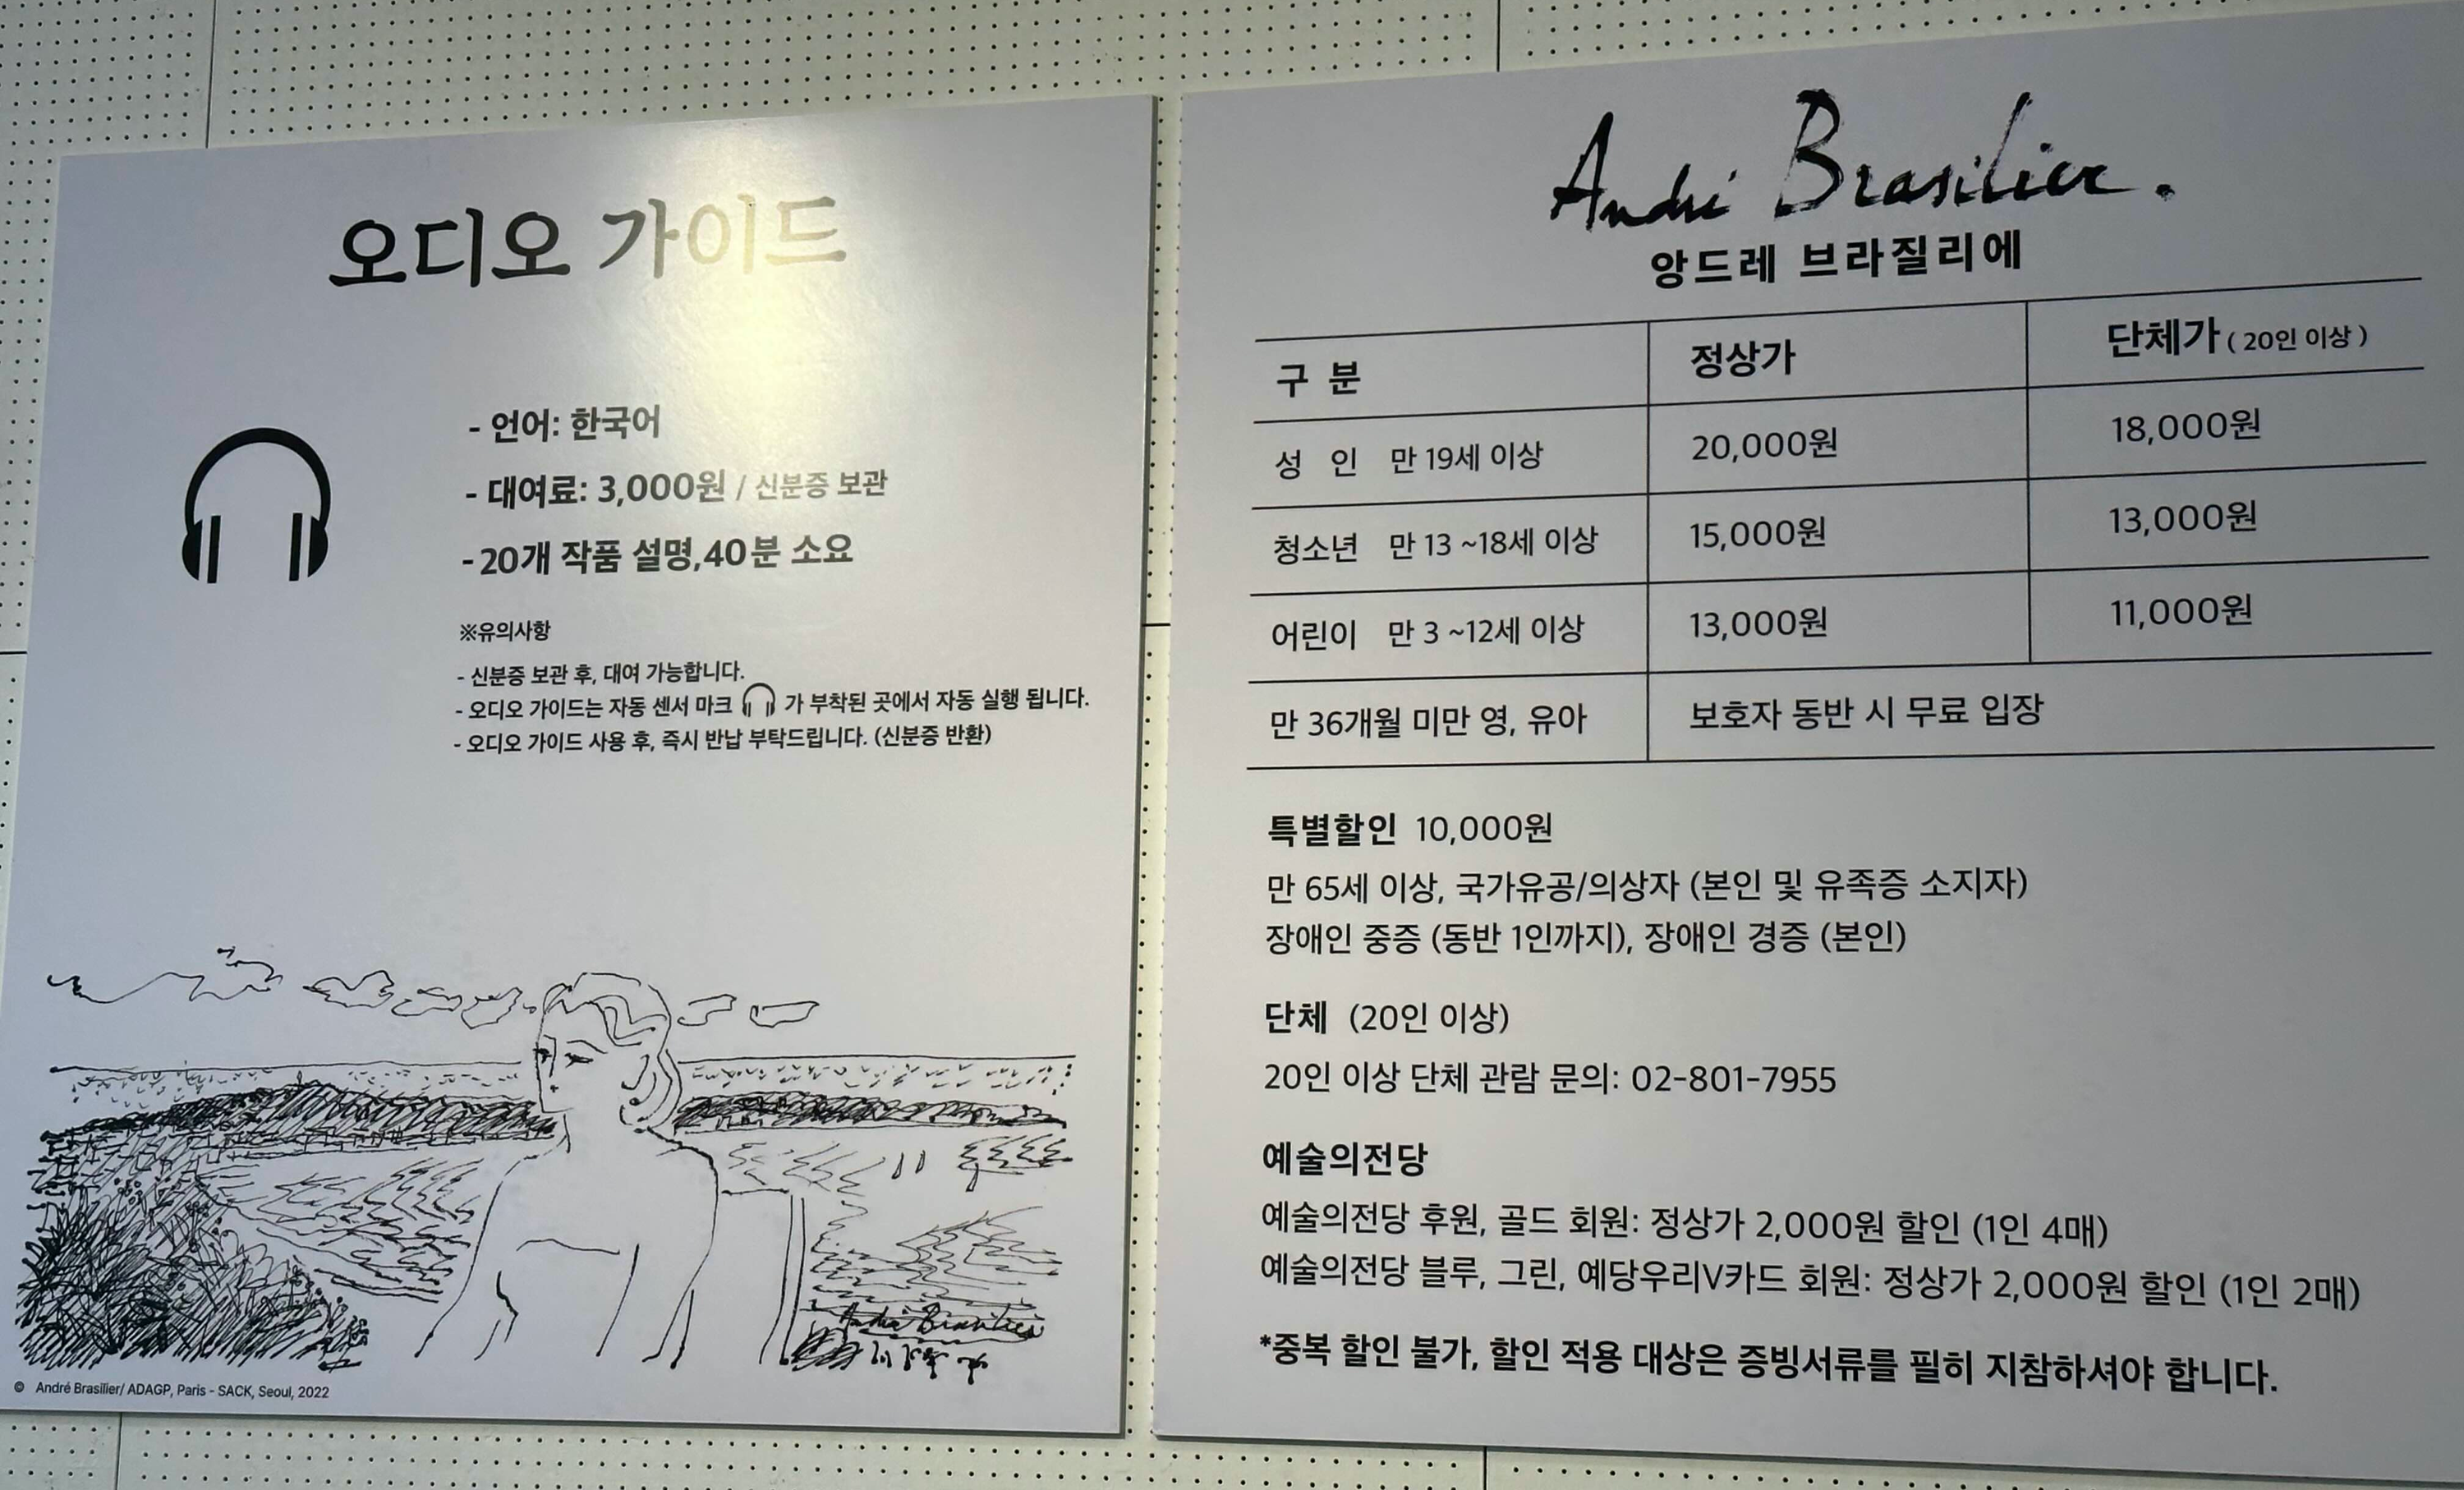 오디오 가이드
- 언어: 한국어
- 대여료: 3,000원 / 신분증 보관
- 20개 작품 설명,40분 소요
※유의사항
- 신분증 보관 후, 대여 가능합니다.
- 오디오 가이드는 자동 센서 마크 가 부착된 곳에서 자동 실행 됩니다.
- 오디오 가이드 사용 후, 즉시 반납 부탁드립니다. (신분증 반환)
André Brasilier
© André Brasilier/ ADAGP, Paris - SACK, Seoul, 2022
André Brasilier.
앙드레 브라질리에
구 분 정상가 단체가 ( 20인 이상 )
성 인 만 19세 이상 20,000원 18,000원
청소년 만 13 ~18세 이상 15,000원 13,000원
어린이 만 3 ~12세 이상 13,000원 11,000원
만 36개월 미만 영, 유아 보호자 동반 시 무료 입장
특별할인 10,000원
만 65세 이상, 국가유공/의상자 (본인 및 유족증 소지자)
장애인 중증 (동반 1인까지), 장애인 경증 (본인)
단체 (20인 이상)
20인 이상 단체 관람 문의: 02-801-7955
예술의전당
예술의전당 후원, 골드 회원: 정상가 2,000원 할인 (1인 4매)
예술의전당 블루, 그린, 예당우리V카드 회원: 정상가 2,000원 할인 (1인 2매)
*중복 할인 불가, 할인 적용 대상은 증빙서류를 필히 지참하셔야 합니다.